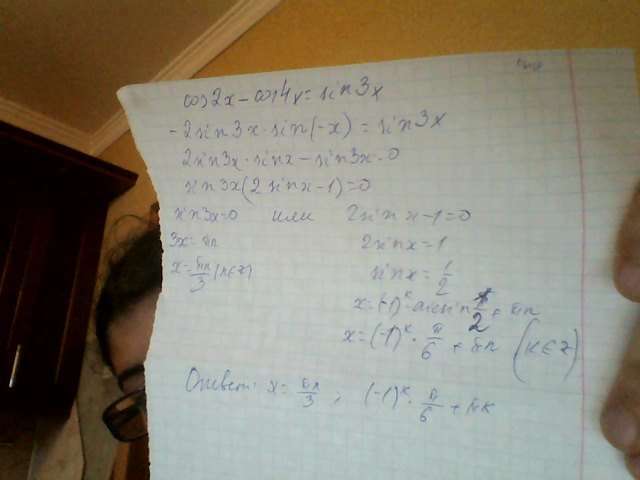 cos2x - cos4x = sin3x
-2sin3x·sin(-x) = sin3x
2sin3x·sinx - sin3x = 0
sin3x(2sinx-1)=0
sin3x=0 или 2sinx-1=0
3x=πn 2sinx=1
x=πn/3 (n∈z) sinx=1/2
x=(-1)^k·arcsin 1/2 + πn
x=(-1)^k·π/6 + πn (k∈z)
Ответ: x=πn/3; (-1)^k·π/6 + πk